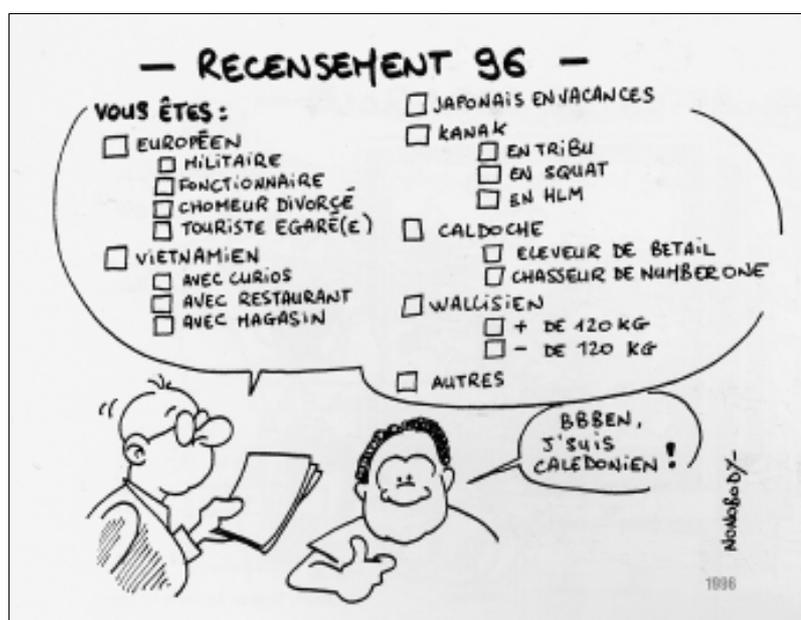 — RECENSEMENT 96 —
VOUS ÊTES :
EUROPÉEN
MILITAIRE
FONCTIONNAIRE
CHOMEUR DIVORCÉ
TOURISTE EGARÉ(E)
VIETNAMIEN
AVEC CURIOS
AVEC RESTAURANT
AVEC MAGASIN
JAPONAIS EN VACANCES
KANAK
EN TRIBU
EN SQUAT
EN HLM
CALDOCHE
ELEVEUR DE BETAIL
CHASSEUR DE NUMBER ONE
WALLISIEN
+ DE 120 KG
- DE 120 KG
AUTRES
BBBEN,
J'SUIS
CALEDONIEN !
NONOBODY-
1996